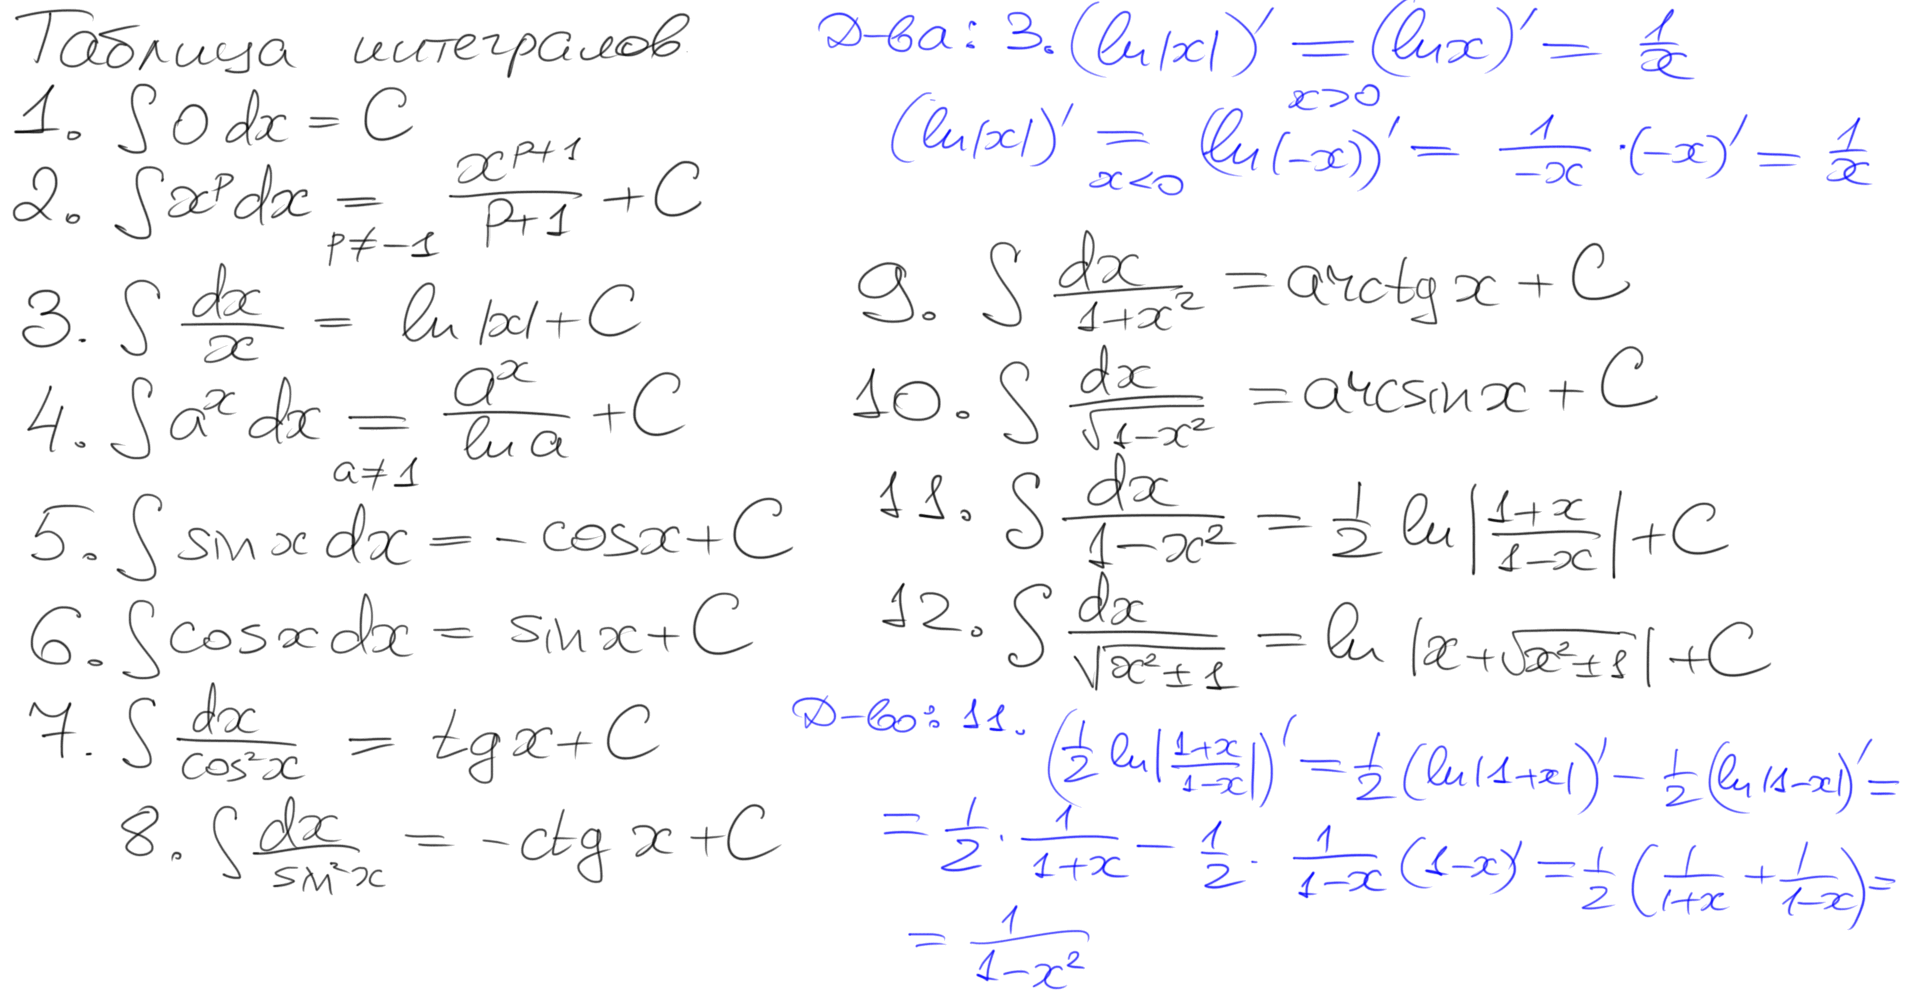 Таблица интегралов
1. ∫ 0 dx = C
2. ∫ x^p dx = x^(p+1)/(p+1) + C
p ≠ -1
3. ∫ dx/x = ln|x| + C
4. ∫ a^x dx = a^x/ln a + C
a ≠ 1
5. ∫ sin x dx = - cos x + C
6. ∫ cos x dx = sin x + C
7. ∫ dx/cos²x = tg x + C
8. ∫ dx/sin²x = - ctg x + C
Д-ва: 3. (ln|x|)' = (ln x)' = 1/x
x>0
(ln|x|)' = (ln(-x))' = 1/-x · (-x)' = 1/x
x<0
9. ∫ dx/(1+x²) = arctg x + C
10. ∫ dx/√(1-x²) = arcsin x + C
11. ∫ dx/(1-x²) = 1/2 ln|(1+x)/(1-x)| + C
12. ∫ dx/√(x²±1) = ln |x+√(x²±1)| + C
Д-во: 11. (1/2 ln|(1+x)/(1-x)|)' = 1/2 (ln|1+x|)' - 1/2 (ln|1-x|)' =
= 1/2 · 1/(1+x) - 1/2 · 1/(1-x) (1-x)' = 1/2 (1/(1+x) + 1/(1-x)) =
= 1/(1-x²)